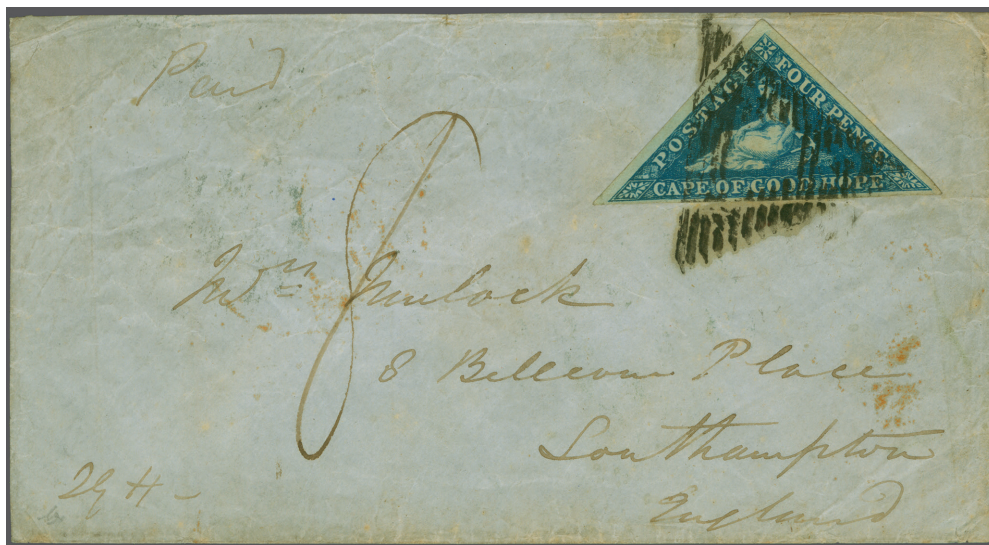 Paid
POSTAGE
FOUR PENCE
CAPE OF GOOD HOPE
Mulock
8 Bellevue Place
Southampton
England
29 H -